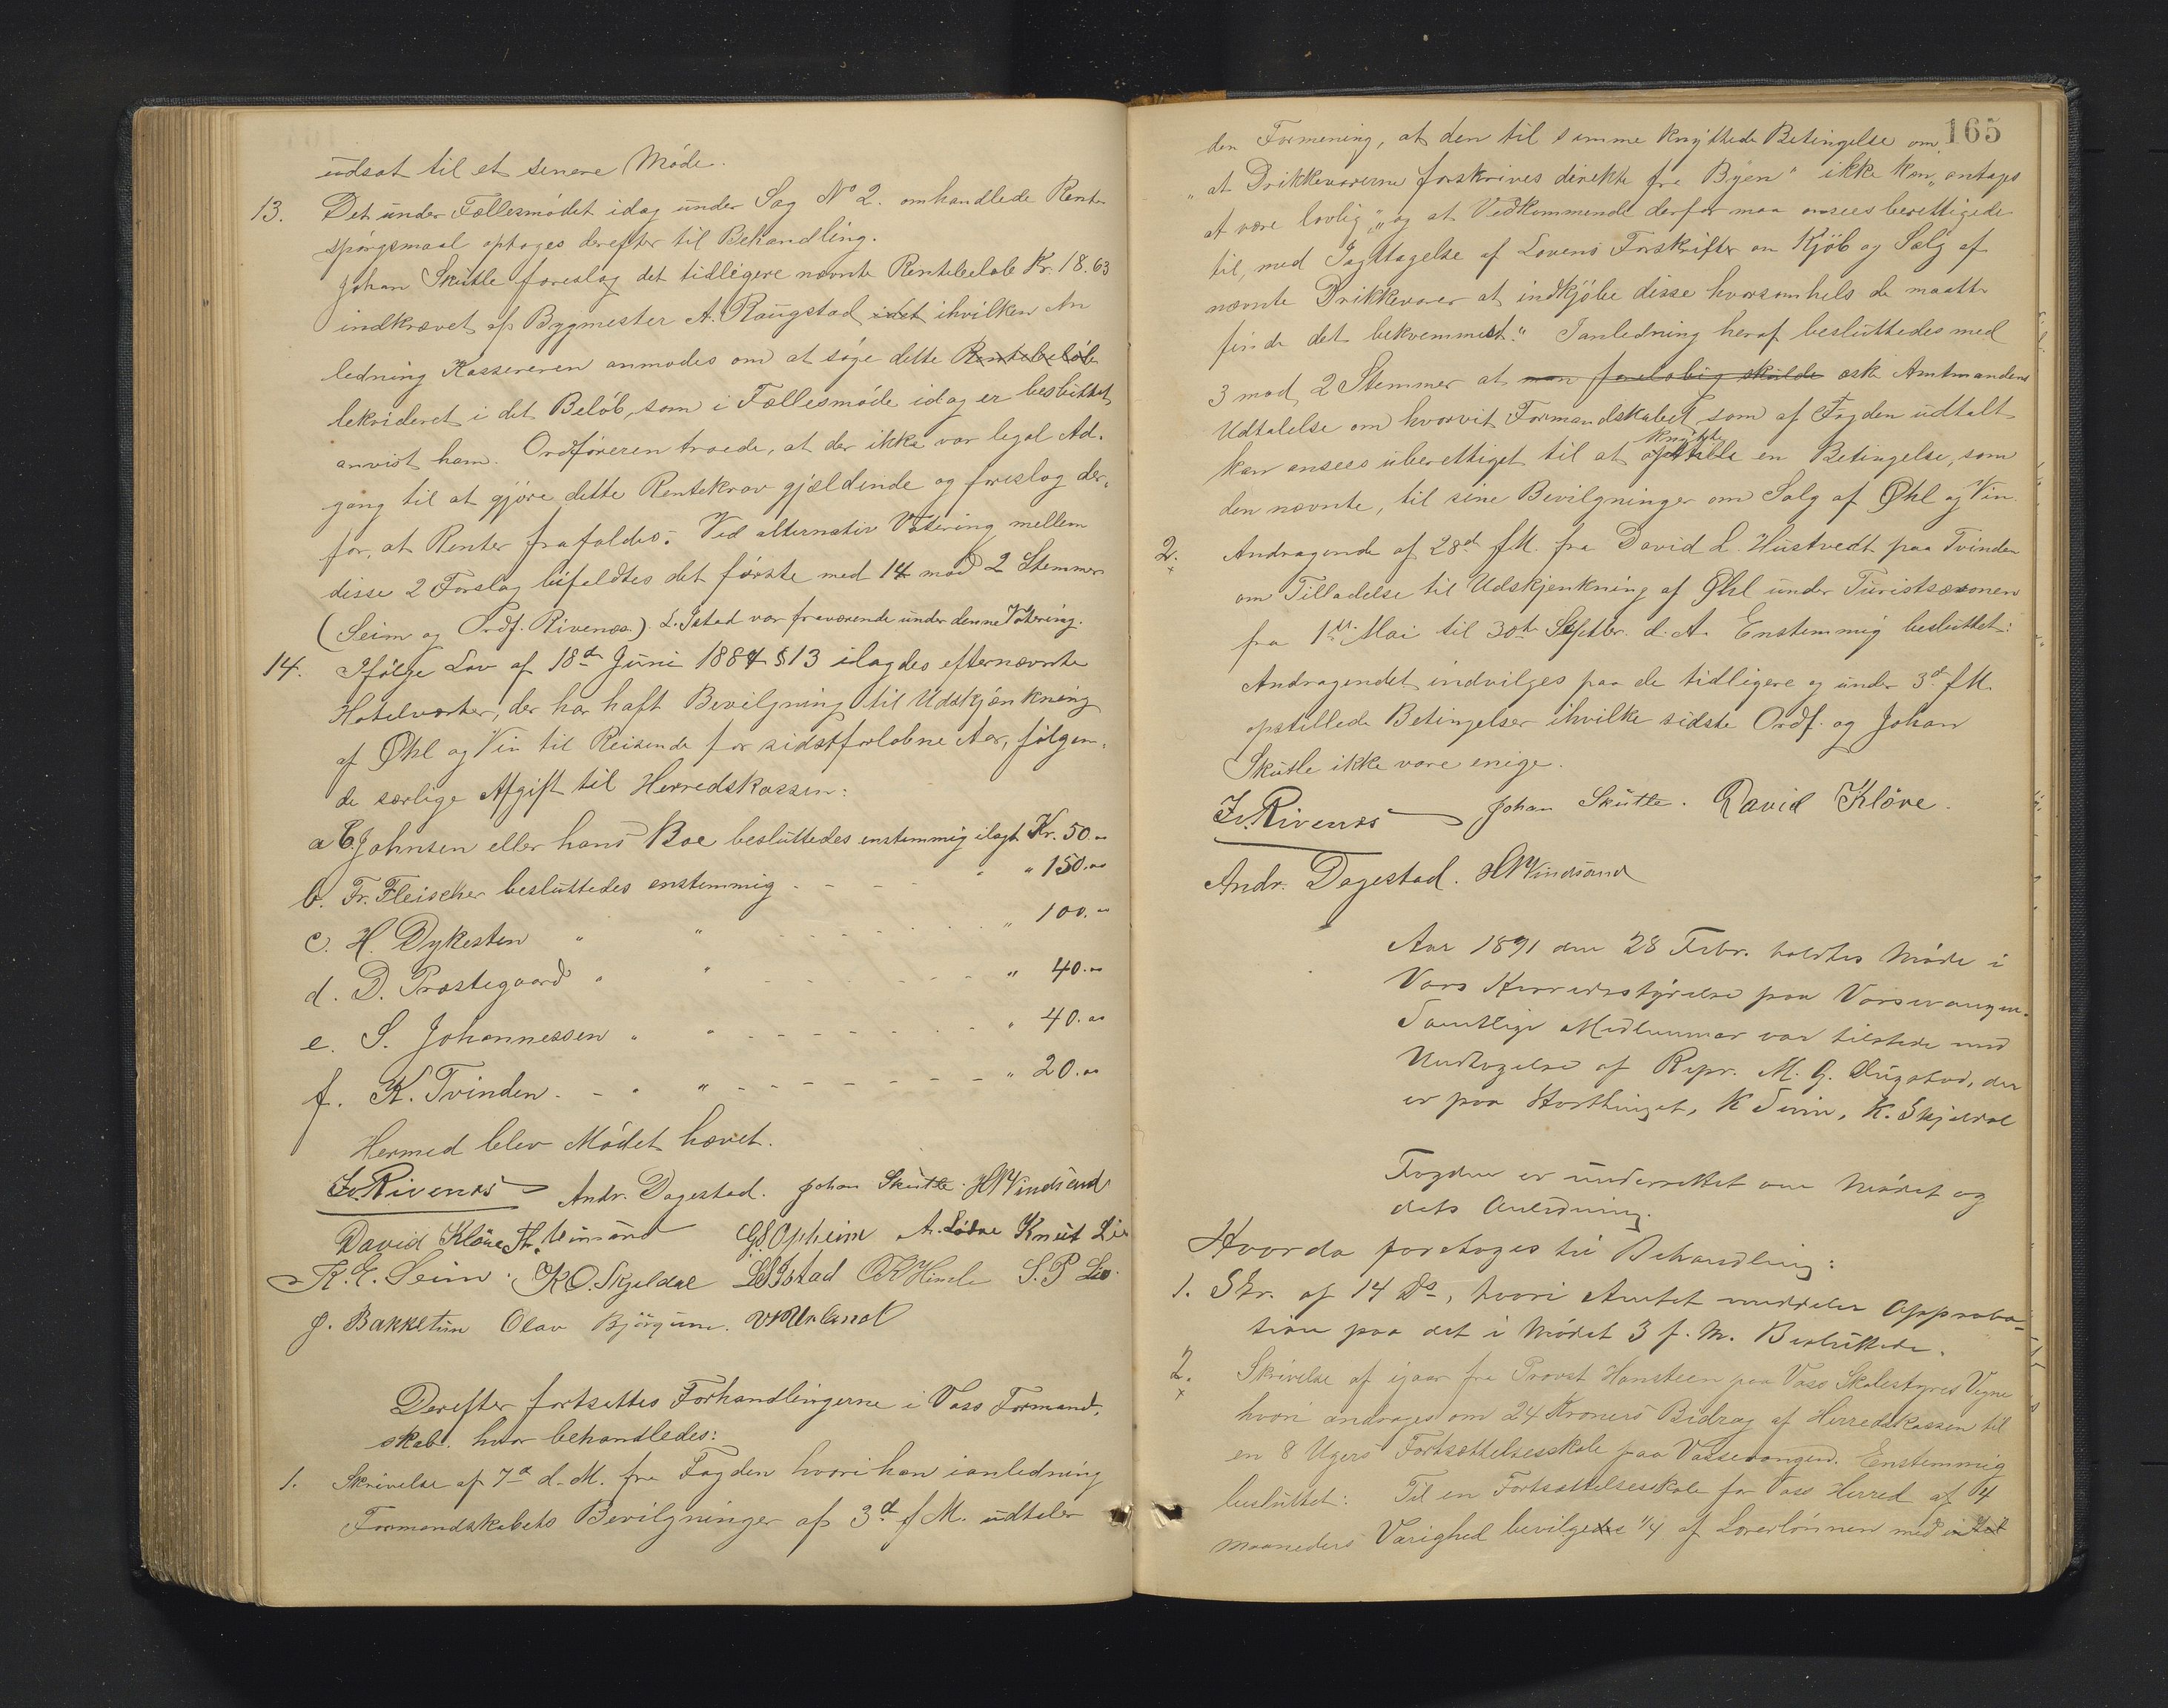 udsat til et senere Møde.
13. Det under Fællesmødet idag under Sag No 2. omhandlede Rente-
spørgsmaal optages derefter til Behandling.
Johan Skutle foreslog det tidligere nævnte Rentebeløb Kr. 18.63
indkrævet af Bygmester A. Raugstad idet ihvilken An
ledning Kassereren anmodes om at søge dette Rentebeløb
lekvideret i det Beløb, som i Fællesmøde idag er besluttet
anvist ham. Ordføreren troede, at der ikke var legal Ad-
gang til at gjøre dette Rentekrav gjældende og foreslog der-
for, at Renter frafaldes. Ved alternativ Votering mellem
disse 2 Forslag bifaldtes det første med 14 mod 2 Stemmer
(Seim og Ordf. Rivenæs). L. Istad var fraværende under denne Votering.
14. Ifølge Lov af 18de Juni 1884 § 13 ilagdes efternævnte
Hotelværter, der har haft Bevilgning til Udskjænkning
af Øhl og Vin til Reisende for sidstforløbne Aar, følgen-
de særlige Afgift til Herredskassen:
a C. Johnsen eller hans Boe besluttedes enstemmig ilagt Kr. 50.00
b. Fr. Fleischer besluttedes enstemmig - - - - " " 150.00
c. H. Dykesten " " - - - - - - " 100.00
d. D. Præstegaard " " - - - - - " 40.00
e. S. Johannessen " " - - - - - - " 40.00
f. K. Tvinden - - " " - - - - - - - " 20.00
Hermed blev Mødet hævet.
Iv. Rivenæs Andr. Dagestad. Johan Skutle. H Vindsand
David Kløve Th. Vinsand G.S. Opheim A. Lødve Knut Lie
K. E. Seim. K O. Skjeldal L Istad O K Himle S. P Lio.
J. Bakketun Olav Bjørgum.
Derefter fortsattes Forhandlingerne i Voss Formand-
skab. hvor behandledes:
1. Skrivelse af 7de d. M. fra Fogden hvori han ianledning
Formandskabets Bevilgninger af 3de f M. udtaler
165
den Formening, at den til samme knyttede Betingelse om
"at Drikkevarerne forskrives direkte fra Byen" ikke kan "antages
at være lovlig", og at Vedkommende derfor maa ansees berettigede
til, med Iagttagelse af Lovens Forskrifter om Kjøb og Salg af
nævnte Drikkevarer at indkjøbe disse hvorsomhels de maatte
finde det bekvemmest." Ianledning heraf besluttedes med
3 mod 2 Stemmer at man foreløbig skulde æske Amtmandens
Udtalelse om hvorvit Formandskabet, som af Fogden udtalt
kan ansees uberettiget til at opstille knytte en Betingelse, som
den nævnte, til sine Bevilgninger om Salg af Øhl og Vin.
2. Andragende af 28de f.M. fra David L. Hustvedt paa Tvinden
x
om Tilladelse til Udskjenkning af Øhl under Turistsæsonen
fra 1ste Mai til 30te Septbr. d. A. Enstemmig besluttet:
Andragendet indvilges paa de tidligere og under 3de f.M.
opstillede Betingelser ihvilke sidste Ordf. og Johan
Skutle ikke vare enige.
Iv. Rivenæs Johan Skutle. David Kløve.
Andr. Dagestad. H Vindsand
Aar 1891 den 28 Febr. holdtes Møde i
Voss Herredsstyrelse paa Vossevangen.
Samtlige Medlemmer var tilstede med
Undtagelse af Repr. M. G. Dugstad, der
er paa Storthinget, K Seim, K. Skjeldal
Fogden er underrettet om Mødet og
dets Anledning.
Hvorda foretoges til Behandling:
1. Skr. af 14 Ds, hvori Amtet meddeler Approba-
tion paa det i Mødet 3 f. M. Besluttede.
2. Skrivelse af igaar fra Provst Hansteen paa Voss Skolestyres Vegne
x
hvori andrages om 24 Kroners Bidrag af Herredskassen til
en 8 Ugers Fortsættelsesskole paa Vossevangen. Enstemmig
besluttet: Til en Fortsættelsesskole for Voss Herred af 4
maaneders Varighed bevilgedes 1/4 af Lærerlønnen med